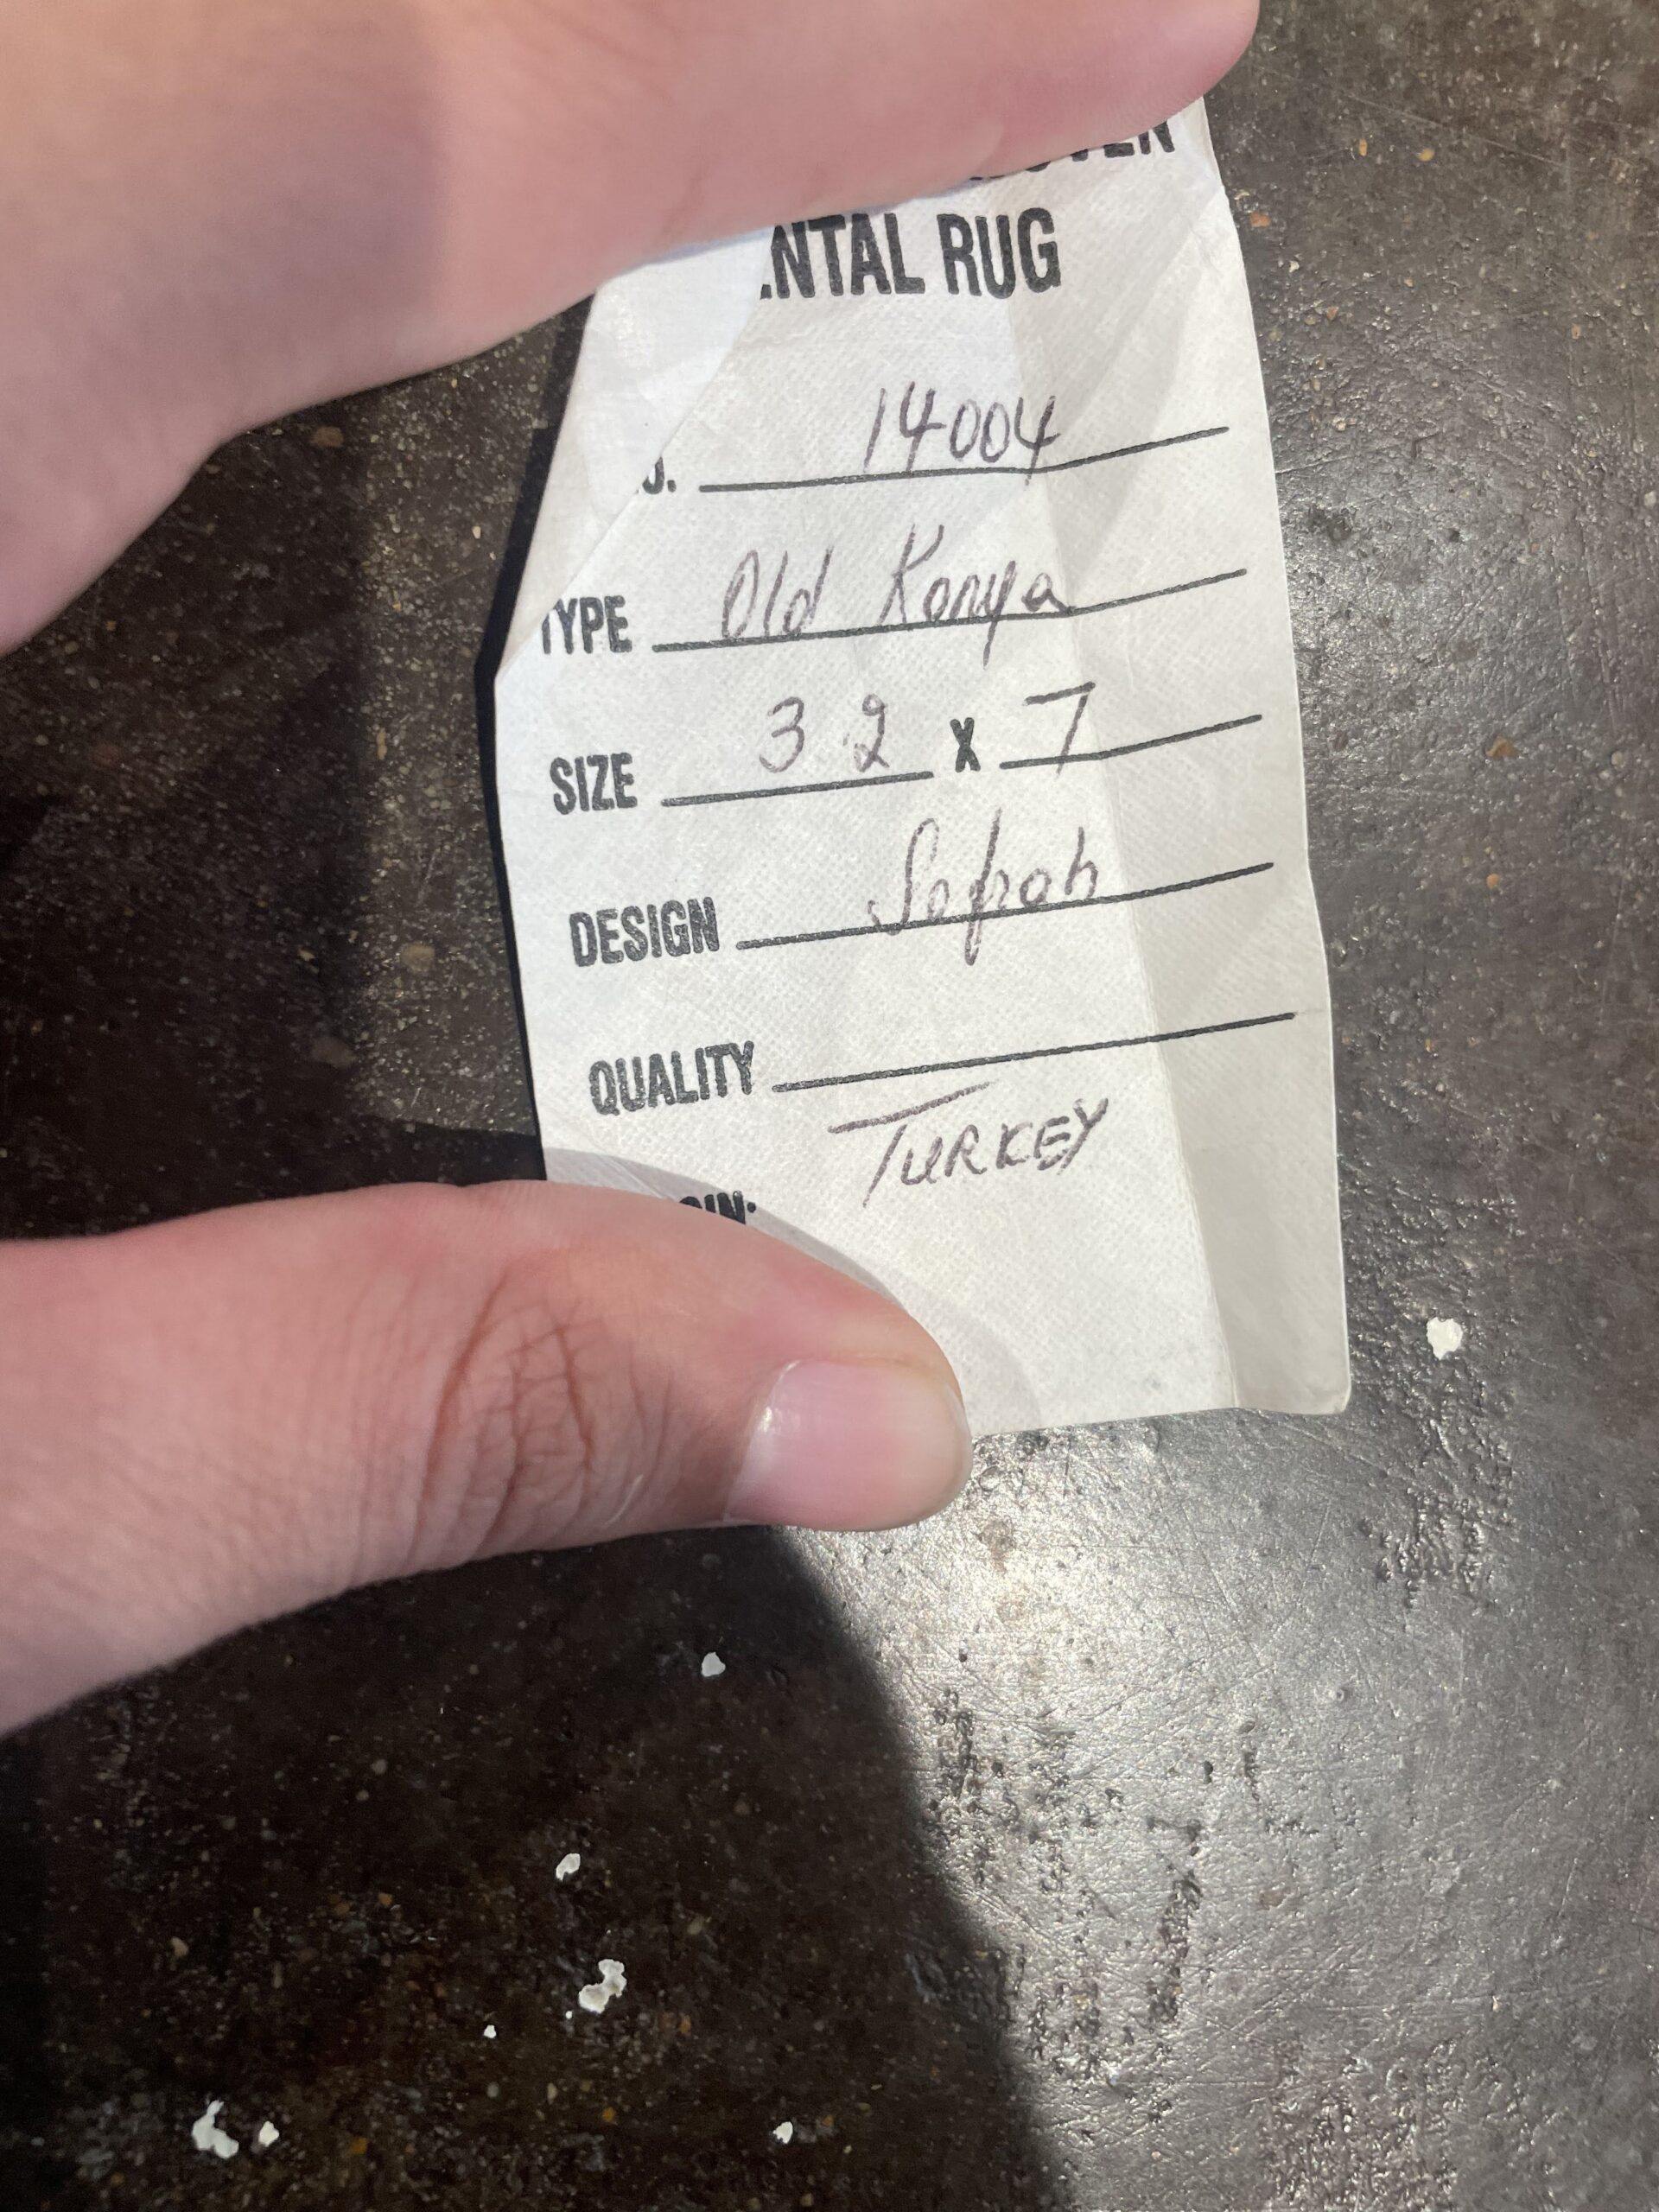 NTAL RUG
14004
TYPE Old Konya
SIZE 3 2 X 7
DESIGN Sofrah
QUALITY
TURKEY